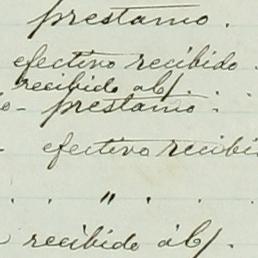 prestamo.
efectivo recibido.
recibido a/f.
prestamo.
efectivo recibi
. . " . .
recibido a/f.